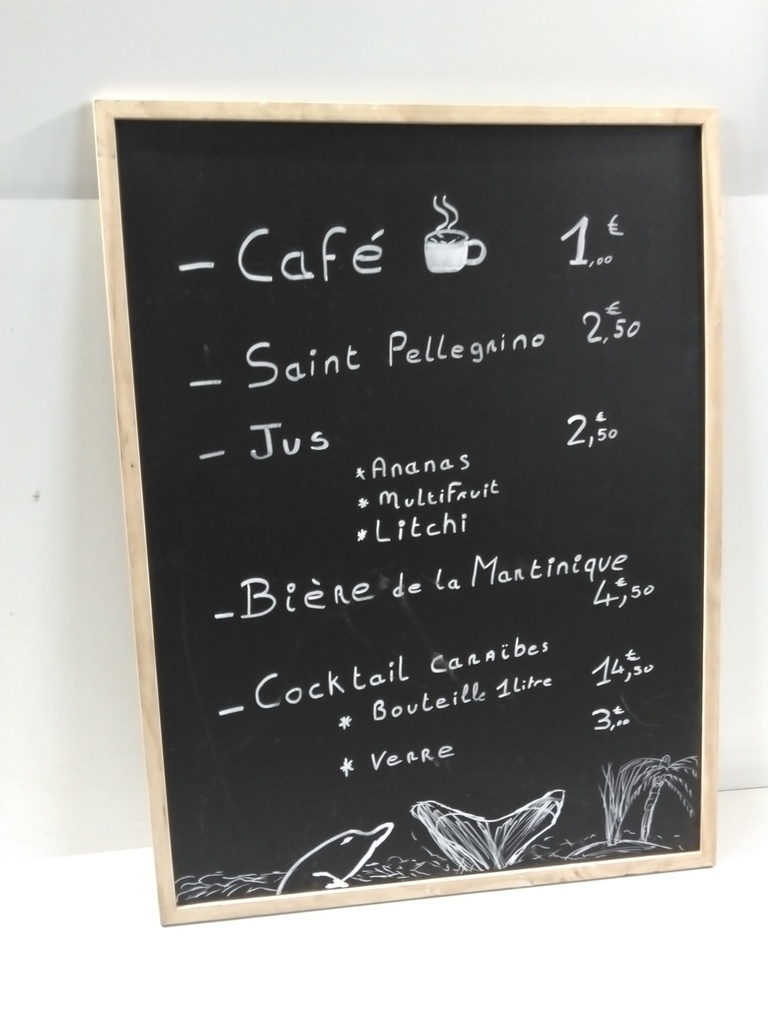 - Café 1,00€
- Saint Pellegrino 2,50€
- Jus 2,50€
* Ananas
* MultiFruit
* Litchi
- Bière de la Martinique
4,50€
- Cocktail Caraïbes
* Bouteille 1 litre 14,50€
* Verre 3,00€